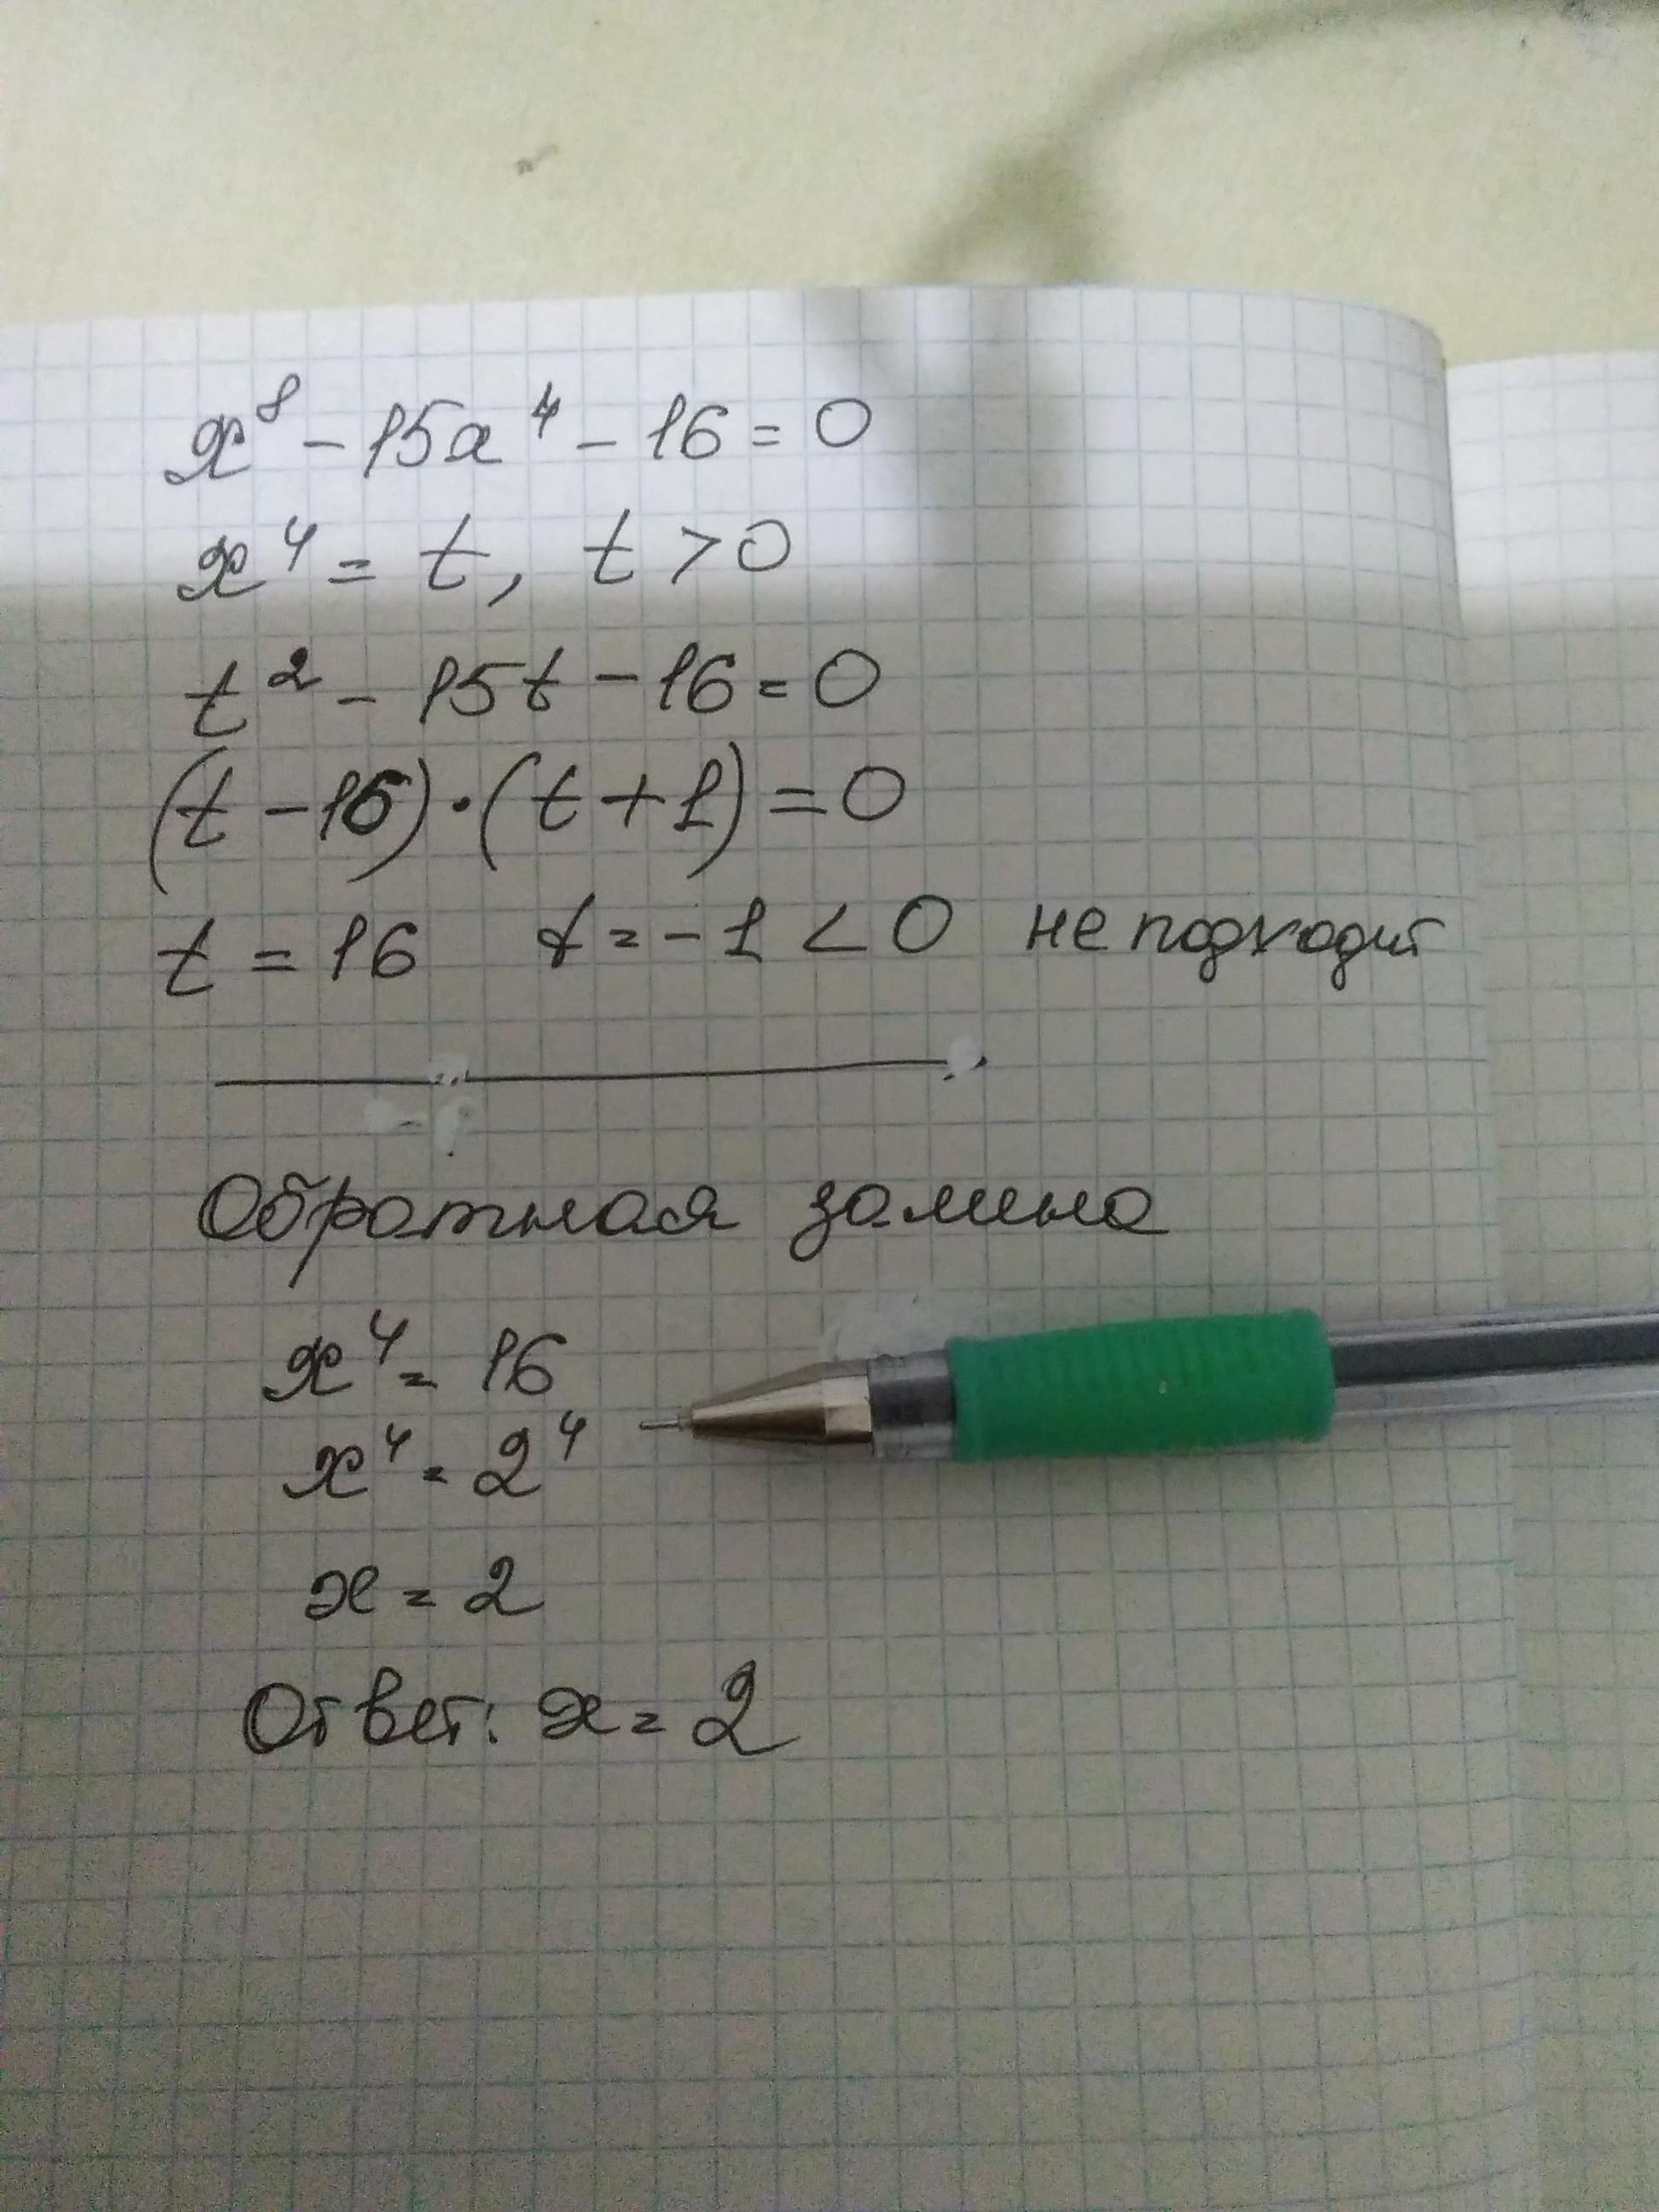 x⁸ - 15x⁴ - 16 = 0
x⁴ = t, t > 0
t² - 15t - 16 = 0
(t - 16) · (t + 1) = 0
t = 16 t = -1 < 0 не подходит
Обратная замена
x⁴ = 16
x⁴ = 2⁴
x = 2
Ответ: x = 2